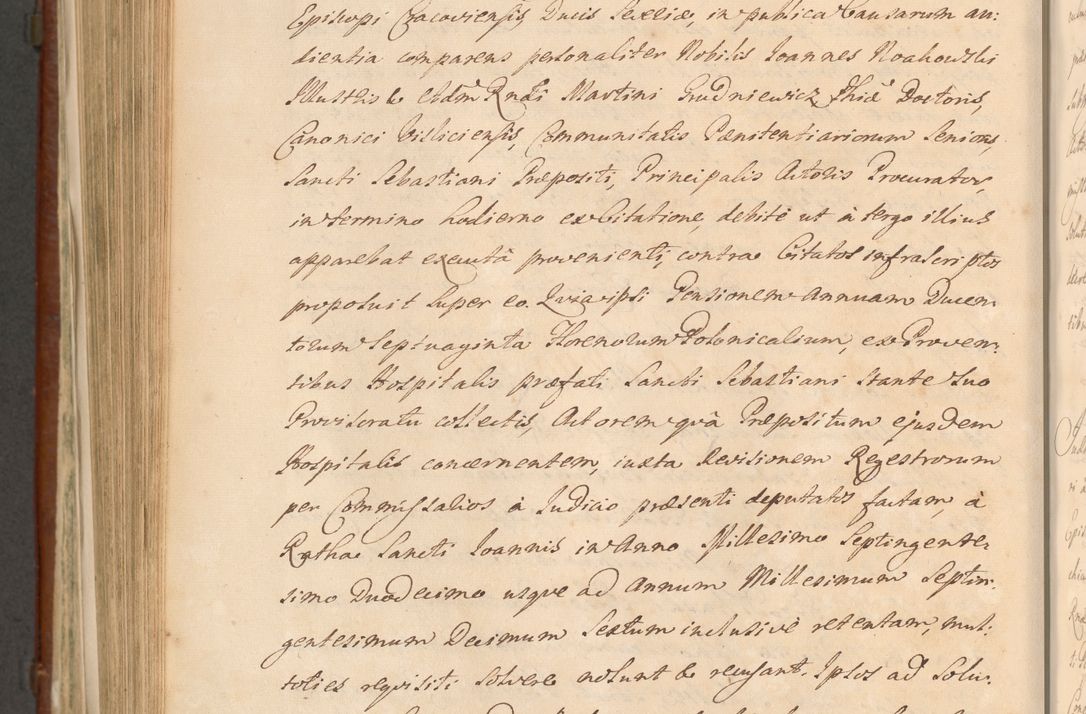 Episcopi Cracoviensis, Ducis Severiae, in publica Causarum au:
dientia comparens personaliter Nobilis Ioannes Roakowski
Illustris & Adm Rndi Martini Grudniewicz Phiae Doctoris,
Canonici Visliciensis, Communitatis Paenitentiariorum Senioris,
Sancti Sebastiani Praepositi, Principalis Actoris Procurator,
in termino hodierno ex Citatione, debitè ut à tergo illius
apparebat executâ provenienti, contra Citatos infrascriptos
proposuit super eo. Quia ipsi Pensionem Annuam Ducen:
torum Septuaginta Florenorum Polonicalium, ex Proven:
tibus Hospitalis praefati Sancti Sebastiani stante suo
Provisoratu collectis, Actorem quà Praepositum ejusdem
Hospitalis concernentem, iuxta Revisionem Regestrorum
per Commissarios à Iudicio praesenti deputatos factam, à
Ratha Sancti Ioannis in Anno Millesimo Septingente:
simo Duodecimo usque ad Annum Millesimum Septin:
gentesimum Decimum Sextum inclusivè retentam, mul:
toties requisiti solvere nolunt & recusant. Ipsos ad Solu: